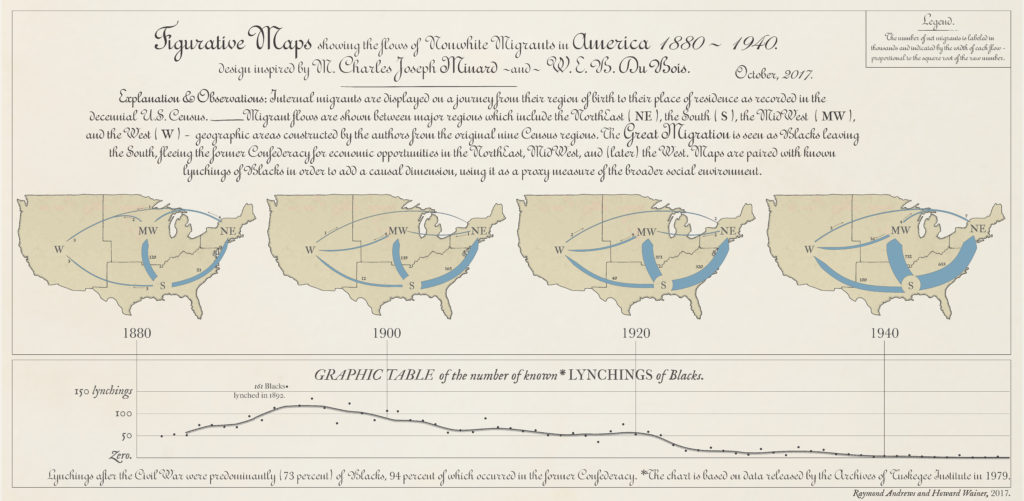 Figurative Maps showing the flows of Nonwhite Migrants in America 1880 ~ 1940.
design inspired by M. Charles Joseph Minard ~and~ W. E. B. Du Bois.
October, 2017.
Legend.
The number of net migrants is labeled in
thousands and indicated by the width of each flow -
proportional to the square root of the raw number.
Explanation & Observations: Internal migrants are displayed on a journey from their region of birth to their place of residence as recorded in the
decennial U.S. Census. Migrant flows are shown between major regions which include the NorthEast (NE), the South (S), the MidWest (MW),
and the West (W) - geographic areas constructed by the authors from the original nine Census regions. The Great Migration is seen as Blacks leaving
the South, fleeing the former Confederacy for economic opportunities in the NorthEast, MidWest, and (later) the West. Maps are paired with known
lynchings of Blacks in order to add a causal dimension, using it as a proxy measure of the broader social environment.
MW NE
W
S
MW NE
W
S
MW NE
W
S
MW NE
W
S
1880 1900 1920 1940
GRAPHIC TABLE of the number of known* LYNCHINGS of Blacks.
161 Blacks
lynched in 1892.
150 lynchings
100
50
Zero.
Lynchings after the Civil War were predominantly (73 percent) of Blacks, 94 percent of which occurred in the former Confederacy. *The chart is based on data released by the Archives of Tuskegee Institute in 1979.
Raymond Andrews and Howard Wainer, 2017.